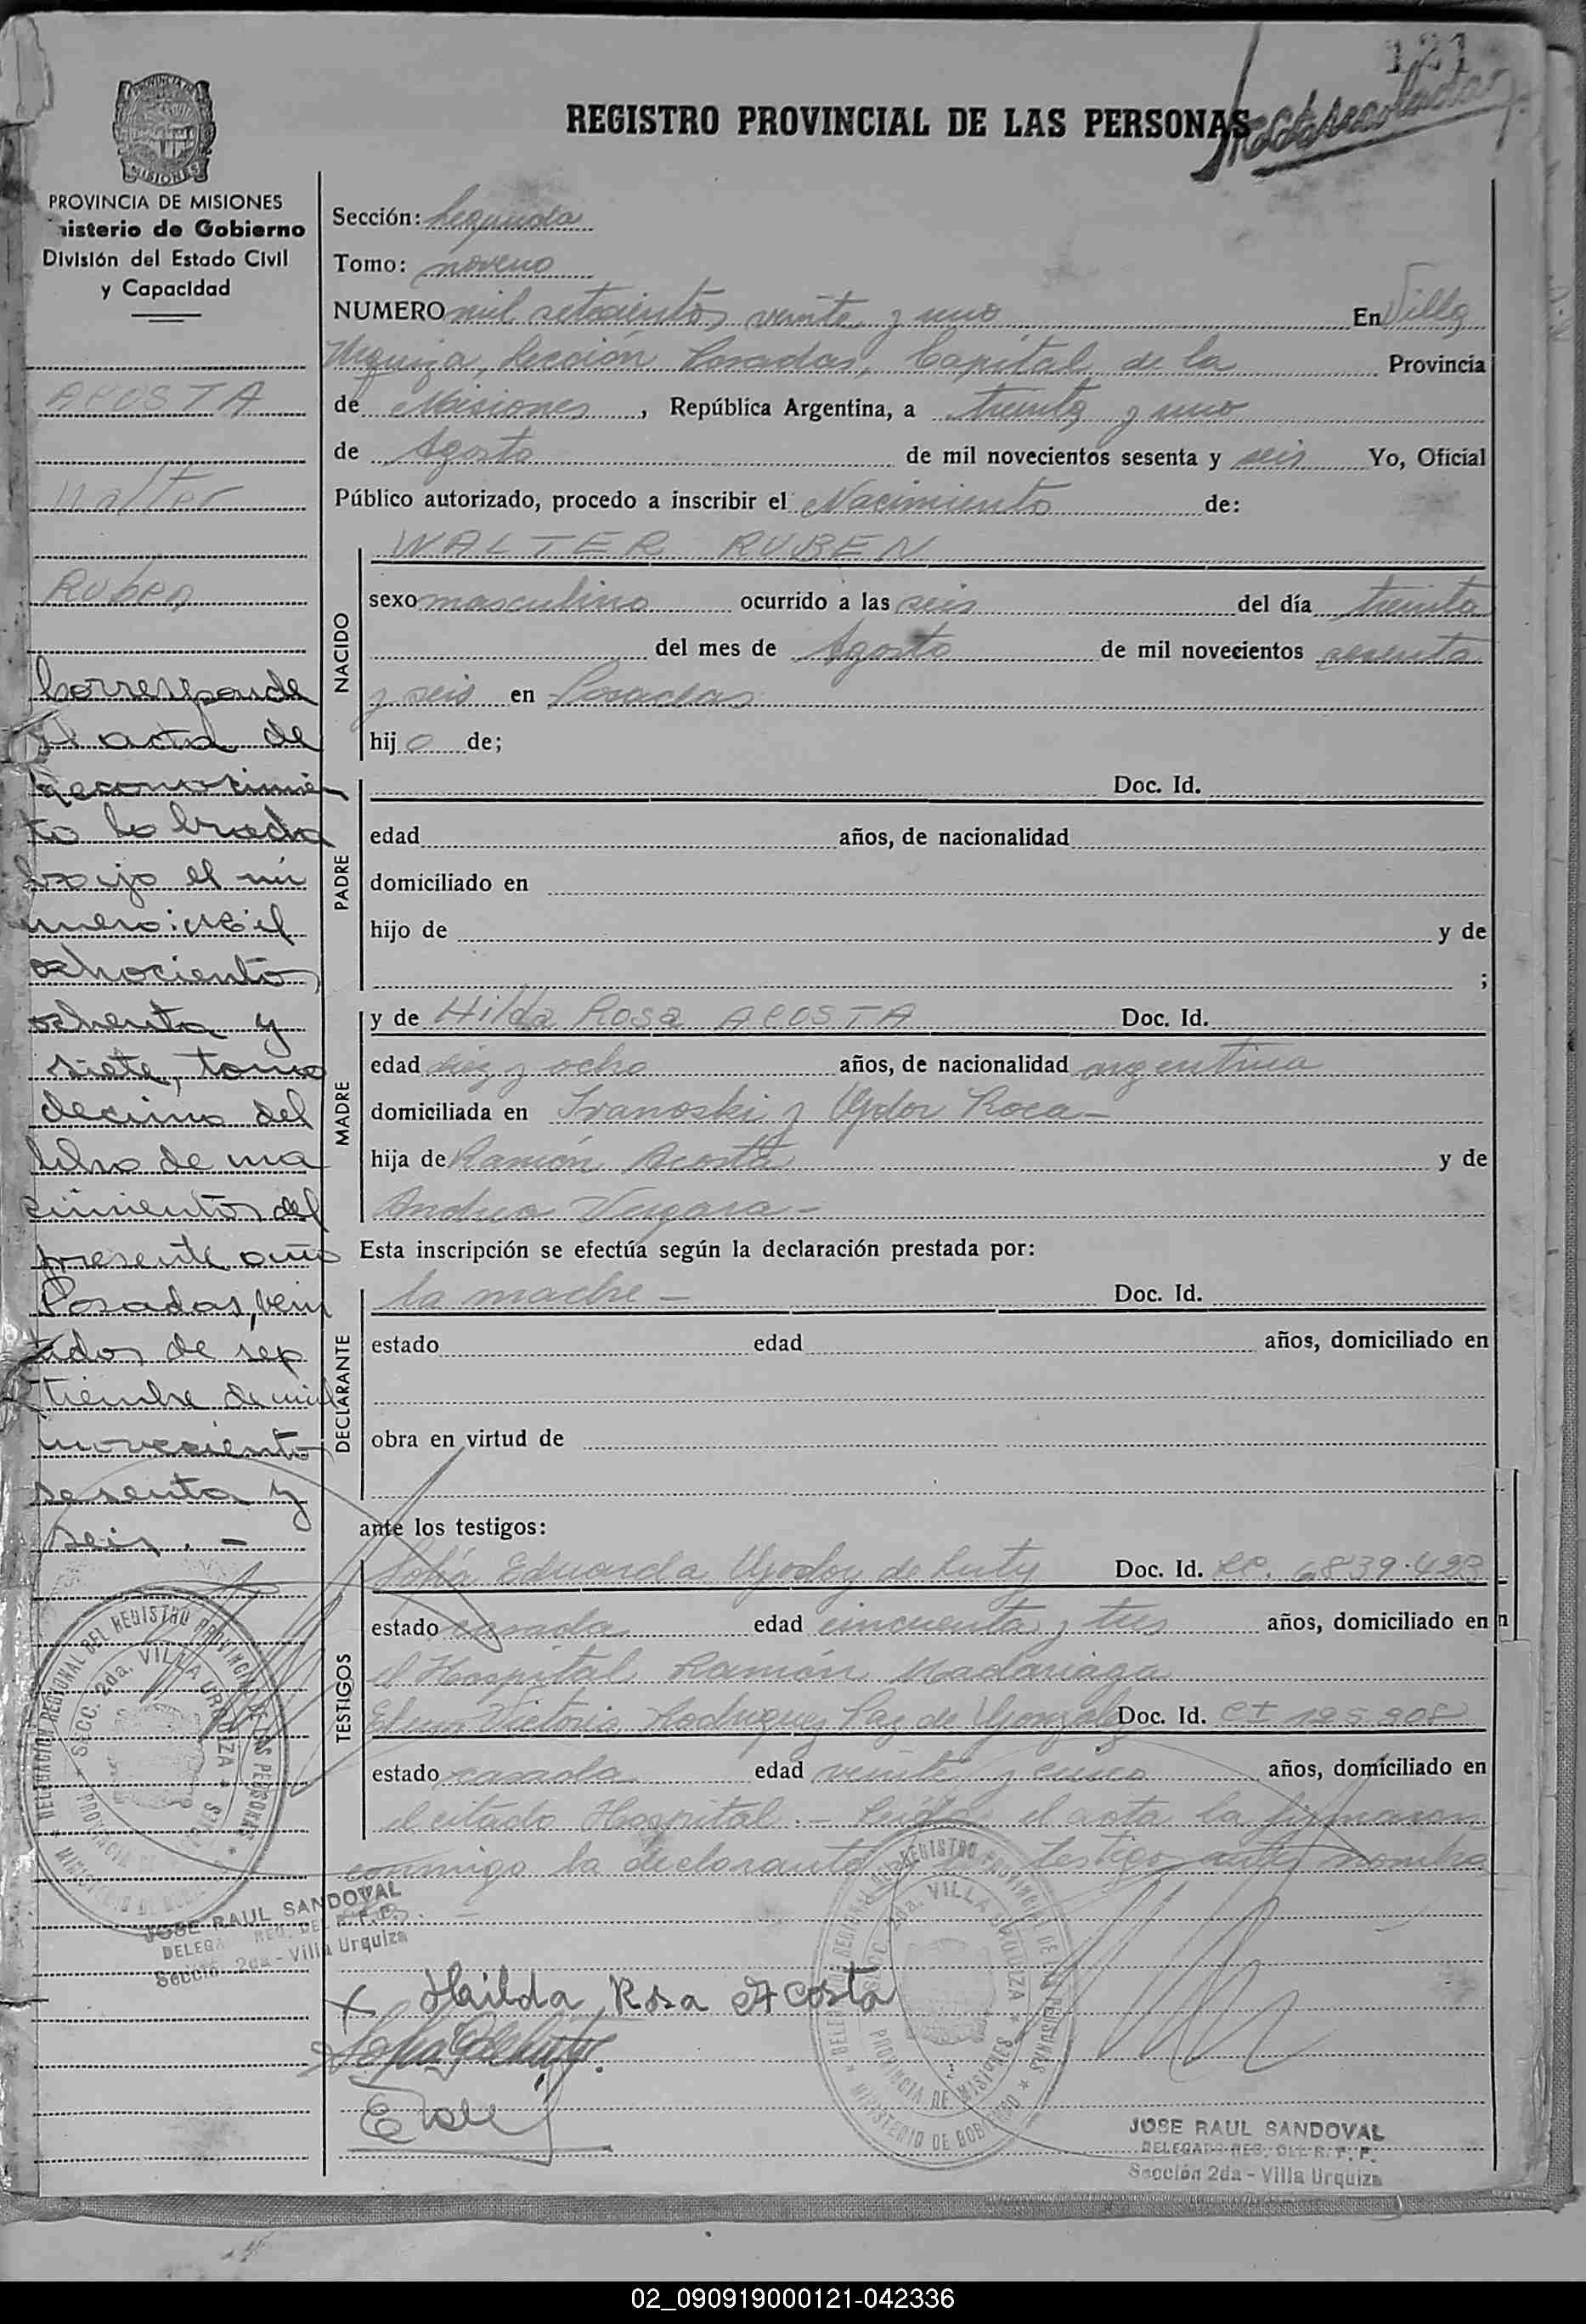 121
REGISTRO PROVINCIAL DE LAS PERSONAS
MISIONES
PROVINCIA DE MISIONES
nisterio de Gobierno
División del Estado Civil
y Capacidad
ACOSTA
Walter
Ruben
Corresponde
el acta de
reconocimien
to labrada
bajo el nú
mero: mil
ochocientos
ochenta y
siete, tomo
decimo del
libro de na
cimientos del
presente año
Posadas, vein
tidos de sep
tiembre de mil
novecientos
sesenta y
seis. -
Sección: Segunda
Tomo: noveno
NUMERO mil setecientos veinte y uno En Villa
Urquiza, Sección Posadas, Capital de la Provincia
de Misiones, República Argentina, a treinta y uno
de Agosto de mil novecientos sesenta y seis Yo, Oficial
Público autorizado, procedo a inscribir el Nacimiento de:
NACIDO
WALTER RUBEN
sexo masculino ocurrido a las seis del día treinta
del mes de Agosto de mil novecientos sesenta
y seis en Posadas
hijo de;
PADRE
Doc. Id.
edad años, de nacionalidad
domiciliado en
hijo de y de
;
MADRE
y de Hilda Rosa ACOSTA Doc. Id.
edad diez y ocho años, de nacionalidad argentina
domiciliada en Ivanoski y Roca -
hija de Ramón Acosta y de
Andrea Vergara -
Esta inscripción se efectúa según la declaración prestada por:
DECLARANTE
la madre - Doc. Id.
estado edad años, domiciliado en
obra en virtud de
ante los testigos:
TESTIGOS
Sofía Eduarda Godoy de Luty Doc. Id. LC. 6839.423
estado casada edad cincuenta y tres años, domiciliado en
el Hospital Ramón Madariaga
Victoria Rodriguez Paz de Doc. Id. CI 125.908
estado casada edad veinte y cinco años, domiciliado en
el citado Hospital. - Leída el acta la firmaron
conmigo la declarante testigo nombra
Hailda Rosa Acosta
DELEGACION REGIONAL DEL REGISTRO PROVINCIAL DE LAS PERSONAS
SECC. 2da. VILLA URQUIZA
PROVINCIA DE MISIONES
MINISTERIO DE GOBIERNO
JOSE RAUL SANDOVAL
DELEGADO REG. DEL R. P. P.
Sección 2da - Villa Urquiza
JOSE RAUL SANDOVAL
DELEGADO REG. DEL R. P. P.
Sección 2da - Villa Urquiza
02_090919000121-042336